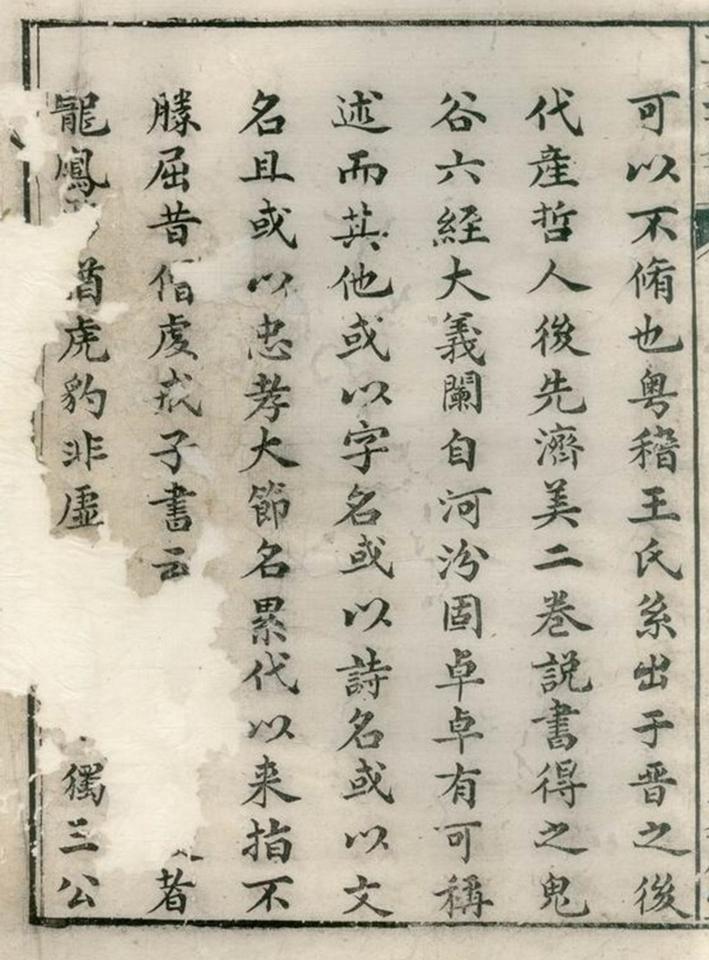 可以不脩也粤稽王氏系出于晋之後
代産哲人後先濟美二巻説書得之鬼
谷六経大義闡自河汾固卓卓有可稱
述而其他或以字名或以詩名或以文
名且或以忠孝大節名累代以来指不
縢屈昔僧虔戒子書云 者
龍鳳 酋虎豹非虚 獨三公